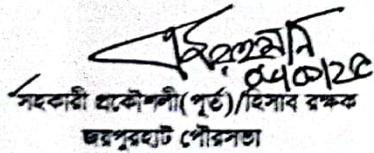 সহকারী প্রকৌশলী(পূর্ত)/হিসাব রক্ষক
জয়পুরহাট পৌরসভা